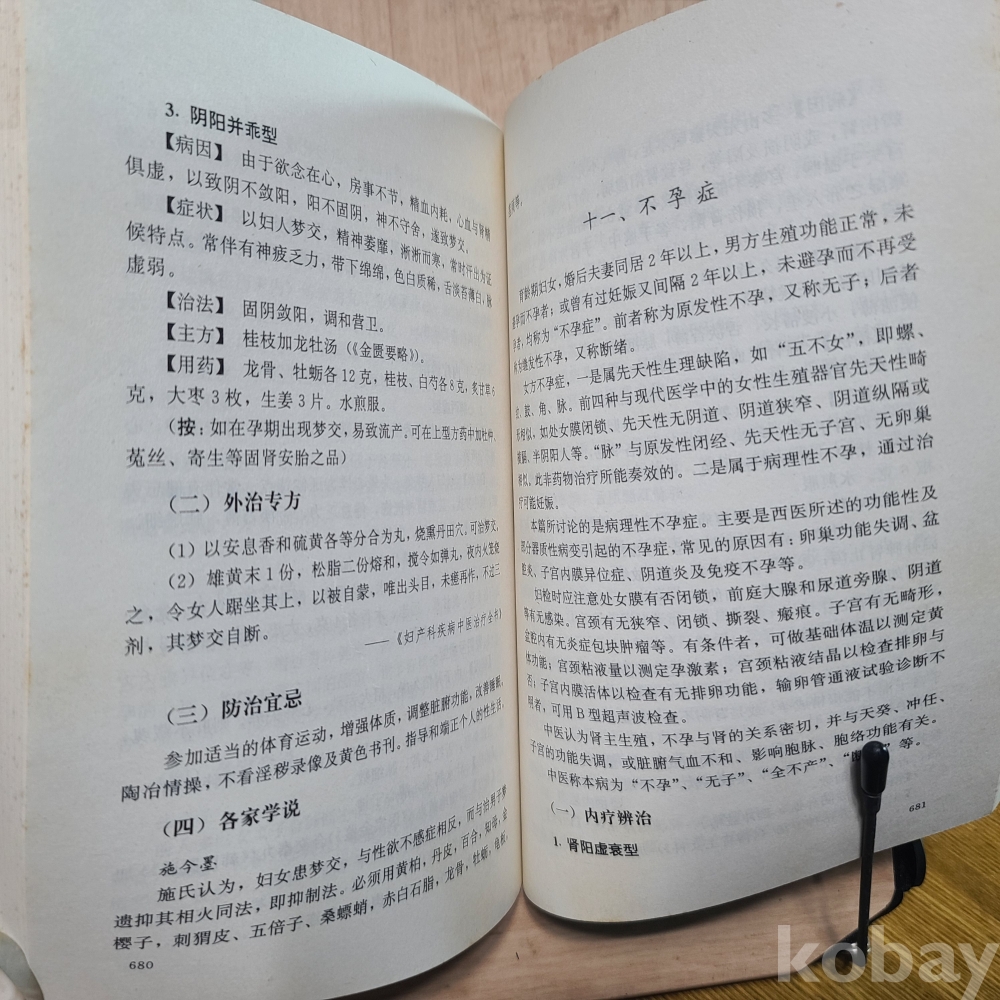 3. 阴阳并乖型
【病因】 由于欲念在心，房事不节，精血内耗，心血与肾精
俱虚，以致阴不敛阳，阳不固阴，神不守舍，遂致梦交。
【症状】 以妇人梦交，精神萎靡，淅淅而寒，常时汗出为证
候特点。常伴有神疲乏力，带下绵绵，色白质稀，舌淡苔薄白，脉
虚弱。
【治法】 固阴敛阳，调和营卫。
【主方】 桂枝加龙牡汤（《金匮要略》）。
【用药】 龙骨、牡蛎各12克，桂枝、白芍各8克，炙甘草6
克，大枣3枚，生姜3片。水煎服。
（按：如在孕期出现梦交，易致流产。可在上型方药中加杜仲、
菟丝、寄生等固肾安胎之品）
（二）外治专方
（1）以安息香和硫黄各等分合为丸，烧熏丹田穴，可治梦交。
（2）雄黄末1份，松脂二份熔和，搅令如弹丸，夜内火笼烧
之，令女人踞坐其上，以被自蒙，唯出头目，未瘥再作，不过三
剂，其梦交自断。
——《妇产科疾病中医治疗全书》
（三）防治宜忌
参加适当的体育运动，增强体质，调整脏腑功能，改善睡眠，
陶冶情操，不看淫秽录像及黄色书刊。指导和端正个人的性生活。
（四）各家学说
施今墨
施氏认为，妇女患梦交，与性欲不感症相反，而与治男子梦
遗抑其相火同法，即抑制法。必须用黄柏，丹皮，百合，知母，金
樱子，刺猬皮、五倍子、桑螵蛸，赤白石脂，龙骨，牡蛎，龟板，
680
十一、不孕症
育龄期妇女，婚后夫妻同居2年以上，男方生殖功能正常，未
避孕而不孕者；或曾有过妊娠又间隔2年以上，未避孕而不再受
孕者，均称为“不孕症”。前者称为原发性不孕，又称无子；后者
称为继发性不孕，又称断绪。
女方不孕症，一是属先天性生理缺陷，如“五不女”，即螺、
鼓、角、脉。前四种与现代医学中的女性生殖器官先天性畸
形相似，如处女膜闭锁、先天性无阴道、阴道狭窄、阴道纵隔或
横膈、半阴阳人等。“脉”与原发性闭经、先天性无子宫、无卵巢
相似。此非药物治疗所能奏效的。二是属于病理性不孕，通过治
疗可能妊娠。
本篇所讨论的是病理性不孕症。主要是西医所述的功能性及
部分器质性病变引起的不孕症，常见的原因有：卵巢功能失调、盆
腔炎、子宫内膜异位症、阴道炎及免疫不孕等。
妇检时应注意处女膜有否闭锁，前庭大腺和尿道旁腺、阴道
等有无感染。宫颈有无狭窄、闭锁、撕裂、瘢痕。子宫有无畸形，
盆腔内有无炎症包块肿瘤等。有条件者，可做基础体温以测定黄
体功能；宫颈粘液量以测定孕激素；宫颈粘液结晶以检查排卵与
否；子宫内膜活体以检查有无排卵功能，输卵管通液试验诊断不
明者，可用B型超声波检查。
中医认为肾主生殖，不孕与肾的关系密切，并与天癸、冲任、
子宫的功能失调，或脏腑气血不和、影响胞脉、胞络功能有关。
中医称本病为“不孕”、“无子”、“全不产”、“ ”等。
（一）内疗辨治
1. 肾阳虚衰型
681
kobay